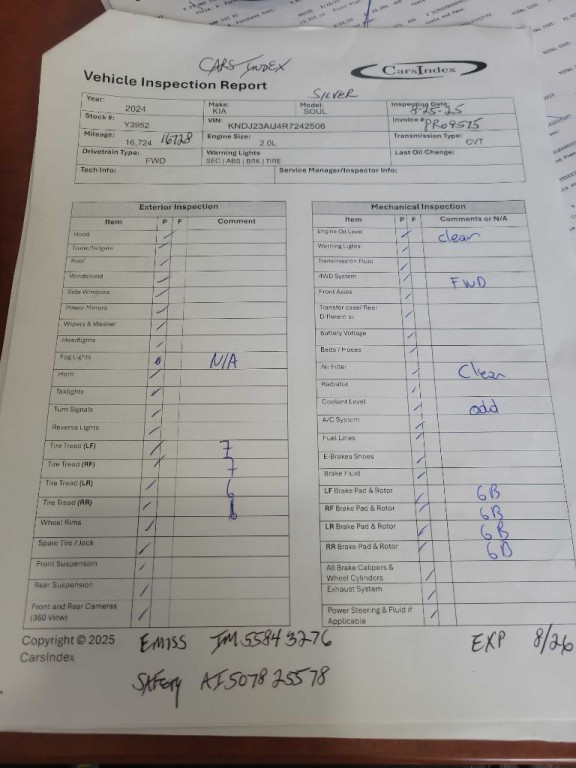 CARS INDEX
CarsIndex
Vehicle Inspection Report
SILVER
Year: 2024 Make: KIA Model: SOUL Inspection Date: 8-25-25
Stock #: Y3952 VIN: KNDJ23AU4R7242506 Invoice # PRO9575
Mileage: 16,724 16728 Engine Size: 2.0L Transmission Type: CVT
Drivetrain Type: FWD Warning Lights SEC | ABS | BRK | TIRE Last Oil Change:
Tech Info: Service Manager/Inspector Info:
Exterior Inspection
Item P F Comment
Hood
Trunk/Tailgate
Roof
Windshield
Side Windows
Power Mirrors
Wipers & Washer
Headlights
Fog Lights N/A
Horn
Taillights
Turn Signals
Reverse Lights
Tire Tread (LF) 7
Tire Tread (RF) 7
Tire Tread (LR) 6
Tire Tread (RR) 6
Wheel Rims
Spare Tire / Jack
Front Suspension
Rear Suspension
Front and Rear Cameras
(360 View)
Mechanical Inspection
Item P F Comments or N/A
Engine Oil Level clean
Warning Lights
Transmission Fluid
4WD System FWD
Front Axles
Transfer case/ Rear
Battery Voltage
Belts / Hoses
Air Filter Clean
Radiator
Coolant Level add
A/C System
Fuel Lines
E-Brakes Shoes
Brake Fluid
LF Brake Pad & Rotor 6B
RF Brake Pad & Rotor 6B
LR Brake Pad & Rotor 6B
RR Brake Pad & Rotor 6B
All Brake Calipers &
Wheel Cylinders
Exhaust System
Power Steering & Fluid if
Applicable
Copyright © 2025
CarsIndex
EMISS IM55843276 EXP 8/26
SAFETY AI507825578